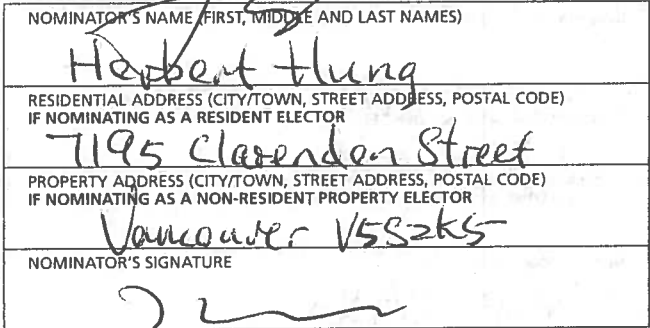 NOMINATOR'S NAME (FIRST, MIDDLE AND LAST NAMES)
Herbert Hung
RESIDENTIAL ADDRESS (CITY/TOWN, STREET ADDRESS, POSTAL CODE)
IF NOMINATING AS A RESIDENT ELECTOR
7195 Clarendon Street
PROPERTY ADDRESS (CITY/TOWN, STREET ADDRESS, POSTAL CODE)
IF NOMINATING AS A NON-RESIDENT PROPERTY ELECTOR
Vancouver V5S2K5
NOMINATOR'S SIGNATURE